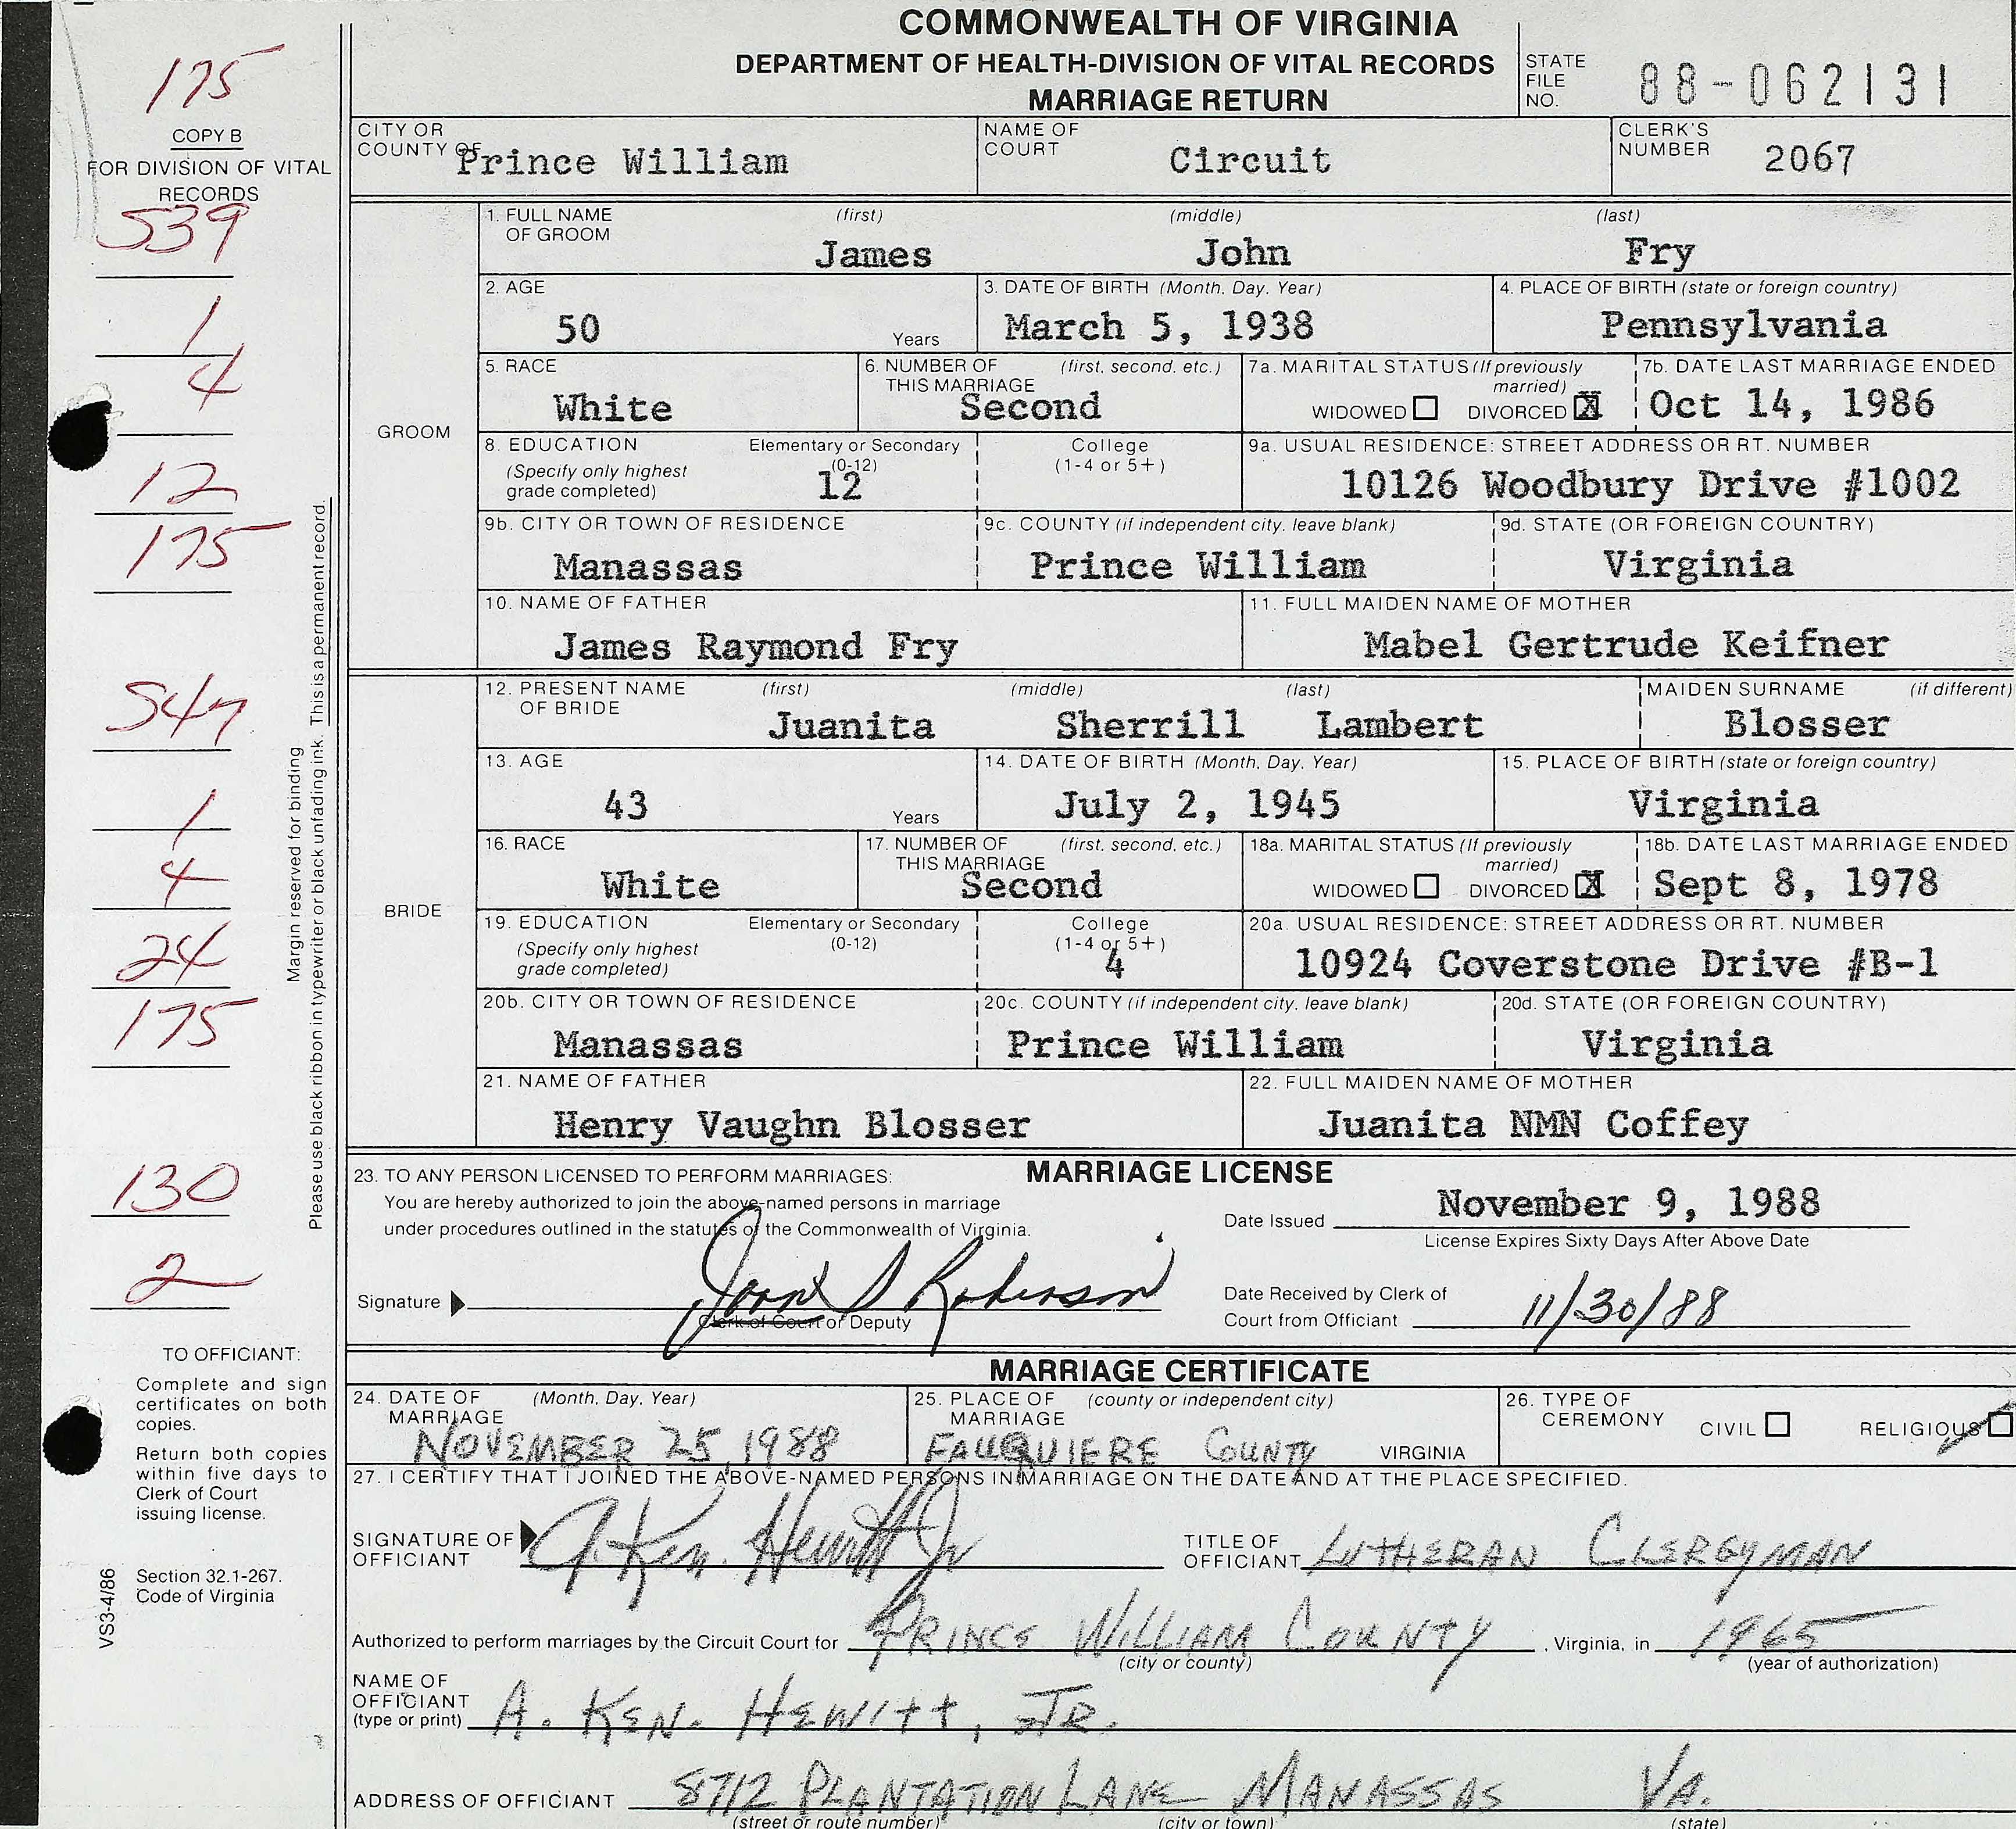 COMMONWEALTH OF VIRGINIA
DEPARTMENT OF HEALTH-DIVISION OF VITAL RECORDS
MARRIAGE RETURN
STATE FILE NO. 88-062131
175
COPY B
FOR DIVISION OF VITAL RECORDS
539
1
4
12
175
547
1
4
24
175
130
2
Margin reserved for binding
Please use black ribbon in typewriter or black unfading ink. This is a permanent record.
TO OFFICIANT:
Complete and sign
certificates on both
copies.
Return both copies
within five days to
Clerk of Court
issuing license.
Section 32.1-267.
Code of Virginia
VS3-4/86
CITY OR COUNTY OF Prince William
NAME OF COURT Circuit
CLERK'S NUMBER 2067
GROOM
1. FULL NAME OF GROOM (first) James (middle) John (last) Fry
2. AGE 50 Years
3. DATE OF BIRTH (Month, Day, Year) March 5, 1938
4. PLACE OF BIRTH (state or foreign country) Pennsylvania
5. RACE White
6. NUMBER OF THIS MARRIAGE (first, second, etc.) Second
7a. MARITAL STATUS (If previously married) WIDOWED DIVORCED X
7b. DATE LAST MARRIAGE ENDED Oct 14, 1986
8. EDUCATION (Specify only highest grade completed) Elementary or Secondary (0-12) 12 College (1-4 or 5+)
9a. USUAL RESIDENCE: STREET ADDRESS OR RT. NUMBER 10126 Woodbury Drive #1002
9b. CITY OR TOWN OF RESIDENCE Manassas
9c. COUNTY (if independent city, leave blank) Prince William
9d. STATE (OR FOREIGN COUNTRY) Virginia
10. NAME OF FATHER James Raymond Fry
11. FULL MAIDEN NAME OF MOTHER Mabel Gertrude Keifner
BRIDE
12. PRESENT NAME OF BRIDE (first) Juanita (middle) Sherrill (last) Lambert MAIDEN SURNAME (if different) Blosser
13. AGE 43 Years
14. DATE OF BIRTH (Month, Day, Year) July 2, 1945
15. PLACE OF BIRTH (state or foreign country) Virginia
16. RACE White
17. NUMBER OF THIS MARRIAGE (first, second, etc.) Second
18a. MARITAL STATUS (If previously married) WIDOWED DIVORCED X
18b. DATE LAST MARRIAGE ENDED Sept 8, 1978
19. EDUCATION (Specify only highest grade completed) Elementary or Secondary (0-12) College (1-4 or 5+) 4
20a. USUAL RESIDENCE: STREET ADDRESS OR RT. NUMBER 10924 Coverstone Drive #B-1
20b. CITY OR TOWN OF RESIDENCE Manassas
20c. COUNTY (if independent city, leave blank) Prince William
20d. STATE (OR FOREIGN COUNTRY) Virginia
21. NAME OF FATHER Henry Vaughn Blosser
22. FULL MAIDEN NAME OF MOTHER Juanita NMN Coffey
MARRIAGE LICENSE
23. TO ANY PERSON LICENSED TO PERFORM MARRIAGES:
You are hereby authorized to join the above-named persons in marriage
under procedures outlined in the statutes of the Commonwealth of Virginia.
Date Issued November 9, 1988
License Expires Sixty Days After Above Date
Signature Joan S Robinson
Clerk of Court or Deputy
Date Received by Clerk of
Court from Officiant 11/30/88
MARRIAGE CERTIFICATE
24. DATE OF MARRIAGE (Month, Day, Year) NOVEMBER 25, 1988
25. PLACE OF MARRIAGE (county or independent city) FAUQUIERE COUNTY VIRGINIA
26. TYPE OF CEREMONY CIVIL RELIGIOUS
27. I CERTIFY THAT I JOINED THE ABOVE-NAMED PERSONS IN MARRIAGE ON THE DATE AND AT THE PLACE SPECIFIED.
SIGNATURE OF OFFICIANT A. Ken. Hewitt Jr
TITLE OF OFFICIANT LUTHERAN CLERGYMAN
Authorized to perform marriages by the Circuit Court for PRINCE WILLIAM COUNTY , Virginia, in 1965
(city or county) (year of authorization)
NAME OF OFFICIANT (type or print) A. KEN. HEWITT, JR.
ADDRESS OF OFFICIANT 8712 PLANTATION LANE MANASSAS VA.
(street or route number) (city or town) (state)